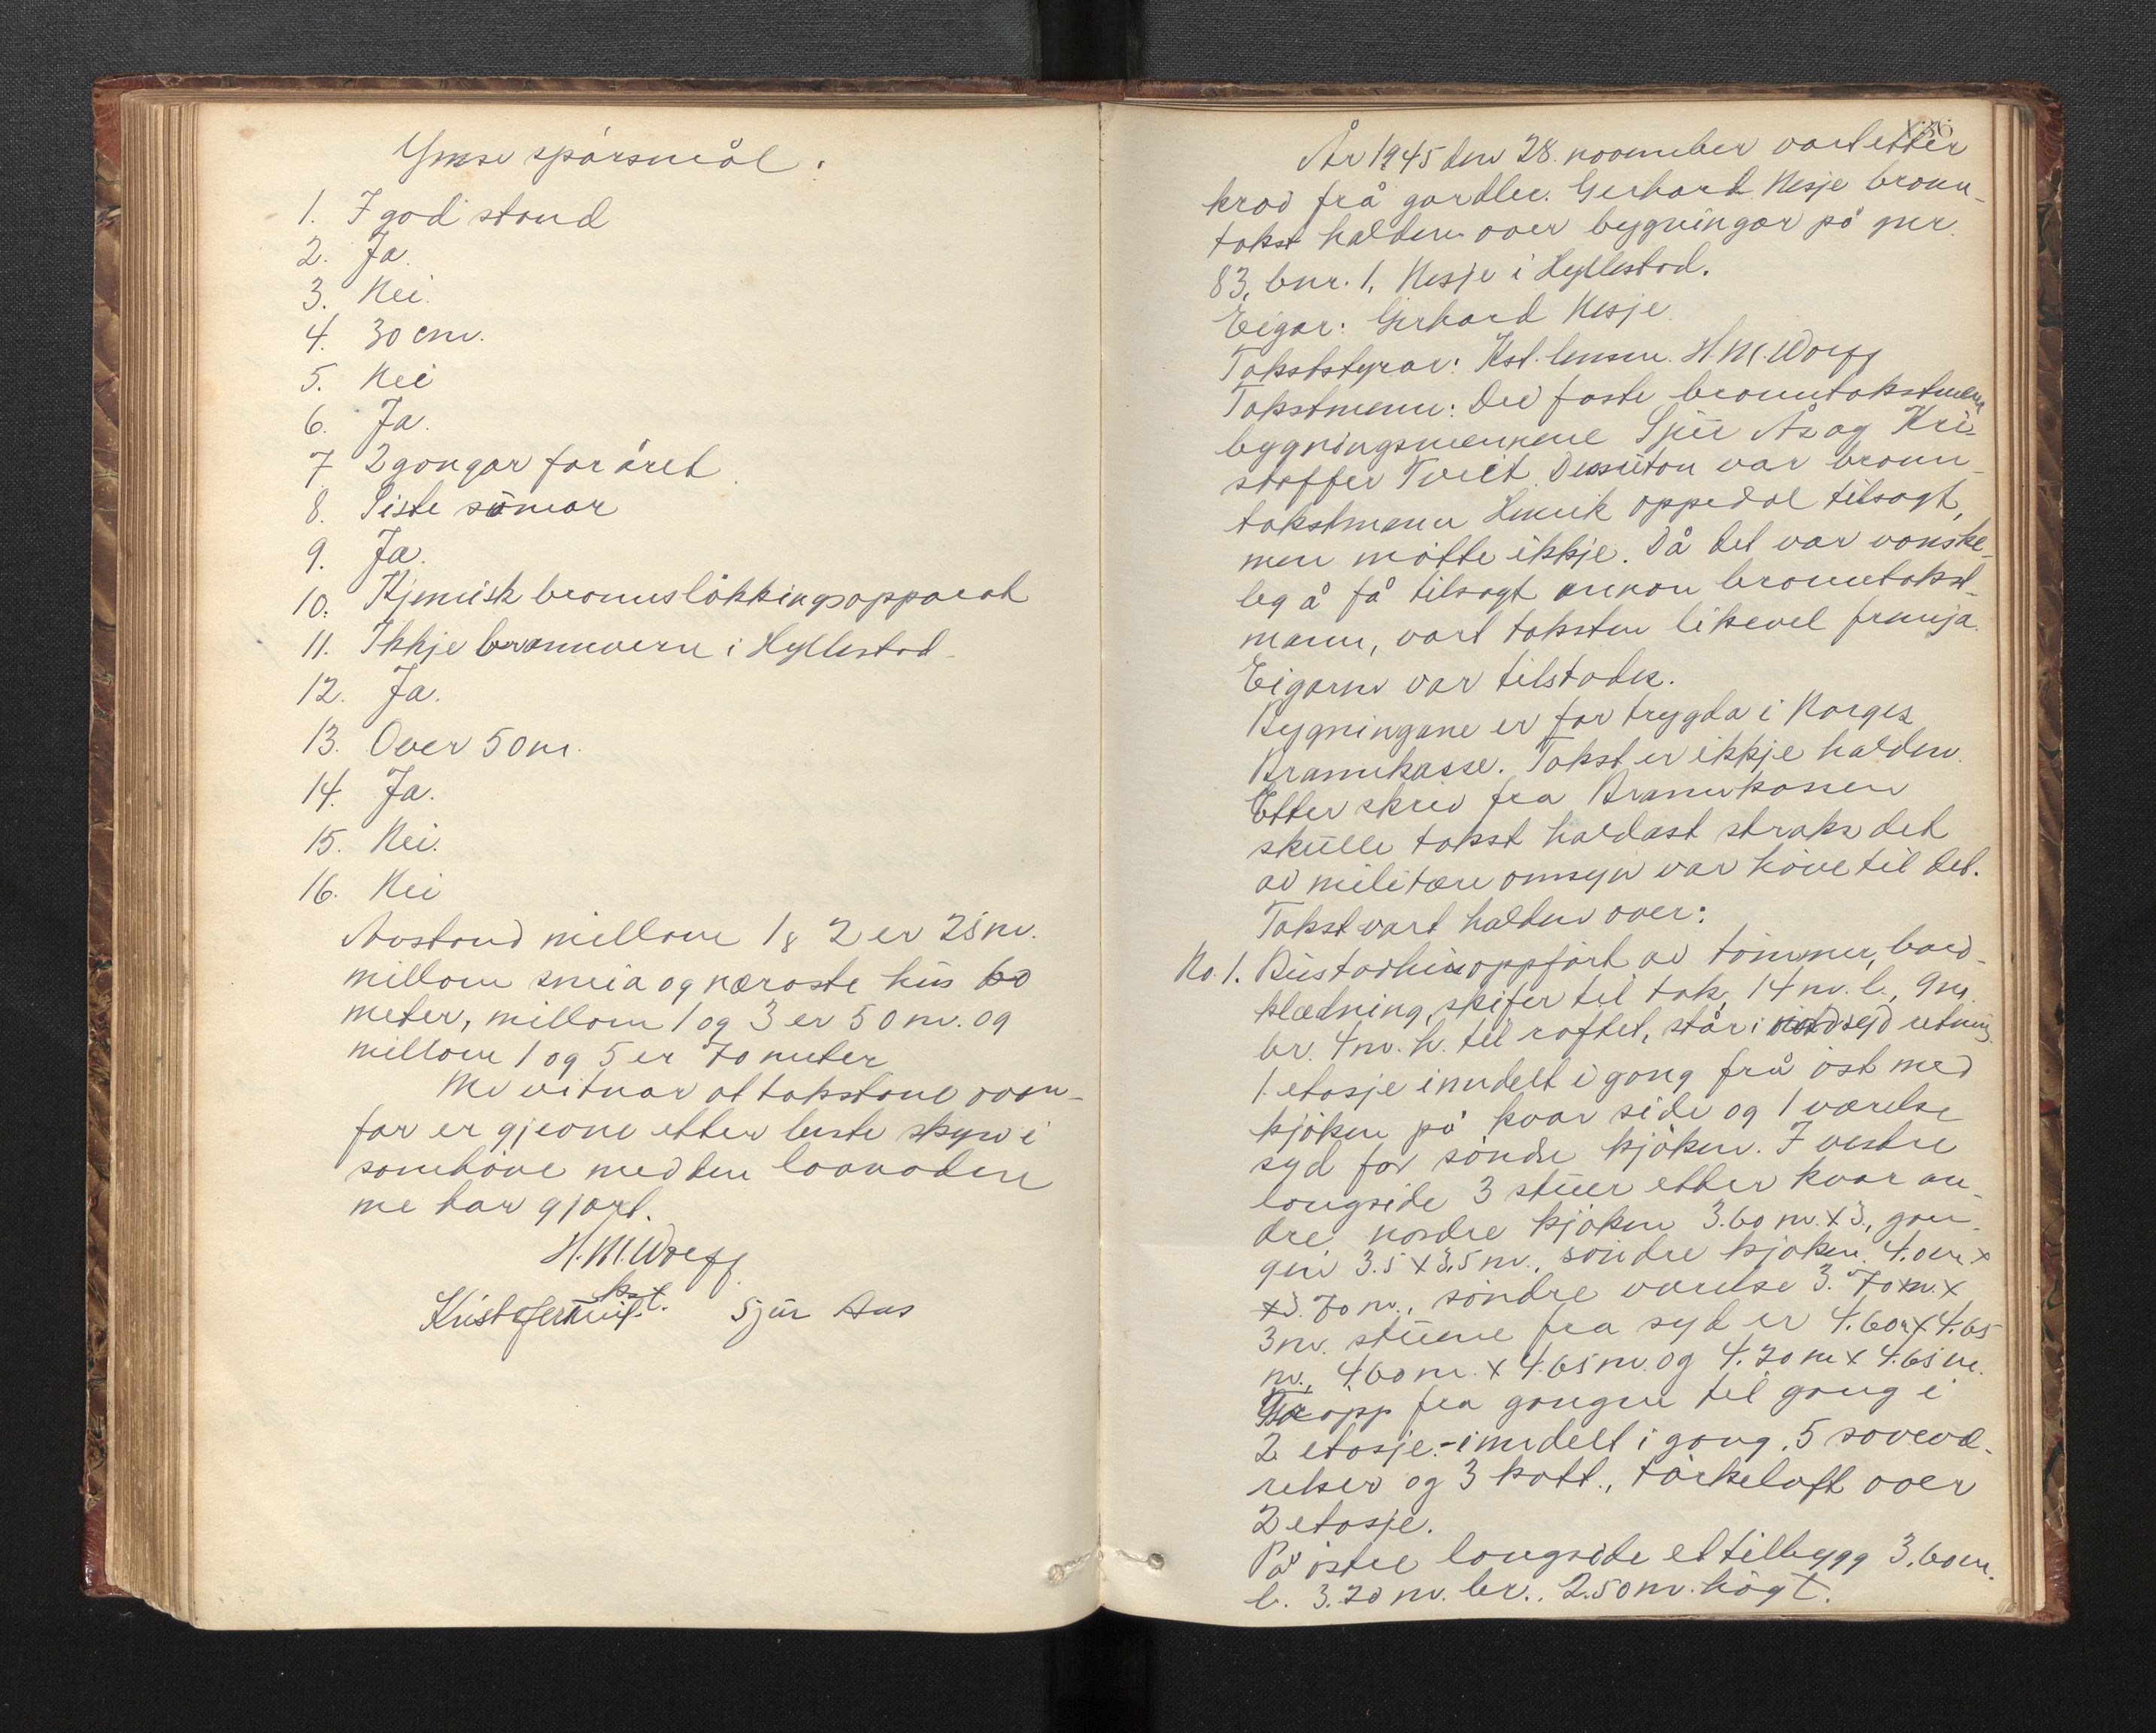 Ymse spörsmål:
1. I god stand
2. Ja.
3. Nei.
4. 30 cm.
5. Nei
6. Ja.
7. 2 gongar for året.
8. Siste sumar
9. Ja.
10. Kjemisk brannslökkingsapparat
11. Ikkje brannvern i Hyllestad.
12. Ja.
13. Over 50 m.
14. Ja.
15. Nei.
16. Nei
Avstand millom 1 & 2 er 25 m.
millom smia og næraste hus 60
meter, millom 1 og 3 er 50 m. og
millom 1 og 5 er 70 meter
Me vitnar at takstane ovan-
for er gjevne etter beste skyn i
samhöve med den lovnaden
me har gjort.
H. M. Wolff
kst.
Kristofer Tveit. Sjur Aas
136
År 1945 den 28. november vart etter
krav frå gardbr. Gerhard Nesje brann-
takst halden over bygningar på gnr.
83, bnr. 1, Nesje i Hyllestad.
Eigar: Gerhard Nesje.
Takststyrar: Kst. lensm. H. M. Wolff
Takstmenn: Dei faste branntakstmenn
bygningsmennene Sjur Ås og Kri-
stoffer Tveit. Dessutan var brann-
takstmann Henrik Oppedal tilsagt,
men mötte ikkje. Då det var vanske-
leg å få tilsagt annan branntakst-
mann, vart taksten likevel fremja.
Eigaren var tilstades.
Bygningane er for trygda i Norges
Brannkasse. Takst er ikkje halden.
Etter skriv fra Brannkassen
skulle takst haldast straks det
av militære omsyn var höve til det.
Takst vart halden over:
No. 1. Bustadhus oppfört av tömmer, bord-
klædning, skifer til tak, 14 m. l., 9 m.
br. 4 m. h. til raftet, står i nord syd retning.
1. etasje inndelt i gang frå öst med
kjöken på kvar side og 1 værelse
syd for söndre kjöken. I vestre
langside 3 stuer etter kvar an-
dre, nordre kjöken 3.60 m. x 3., gan-
gen 3.5 x 3,5 m., söndre kjöken 4.0 m x
x 3.70 m., söndre værelse 3.70 m. x
3 m. stuene fra syd er 4.60 m x 4.65
m., 4.60 m. x 4.65 m. og 4.70 m x 4.65 m.
opp fra gangen til gang i
2 etasje.- inndelt i gang, 5 sovevæ-
relser og 3 kott., törkeloft over
2 etasje.
På östre langside et tilbygg 3.60 m.
l. 3.70 m. br., 2.50 m. högt.